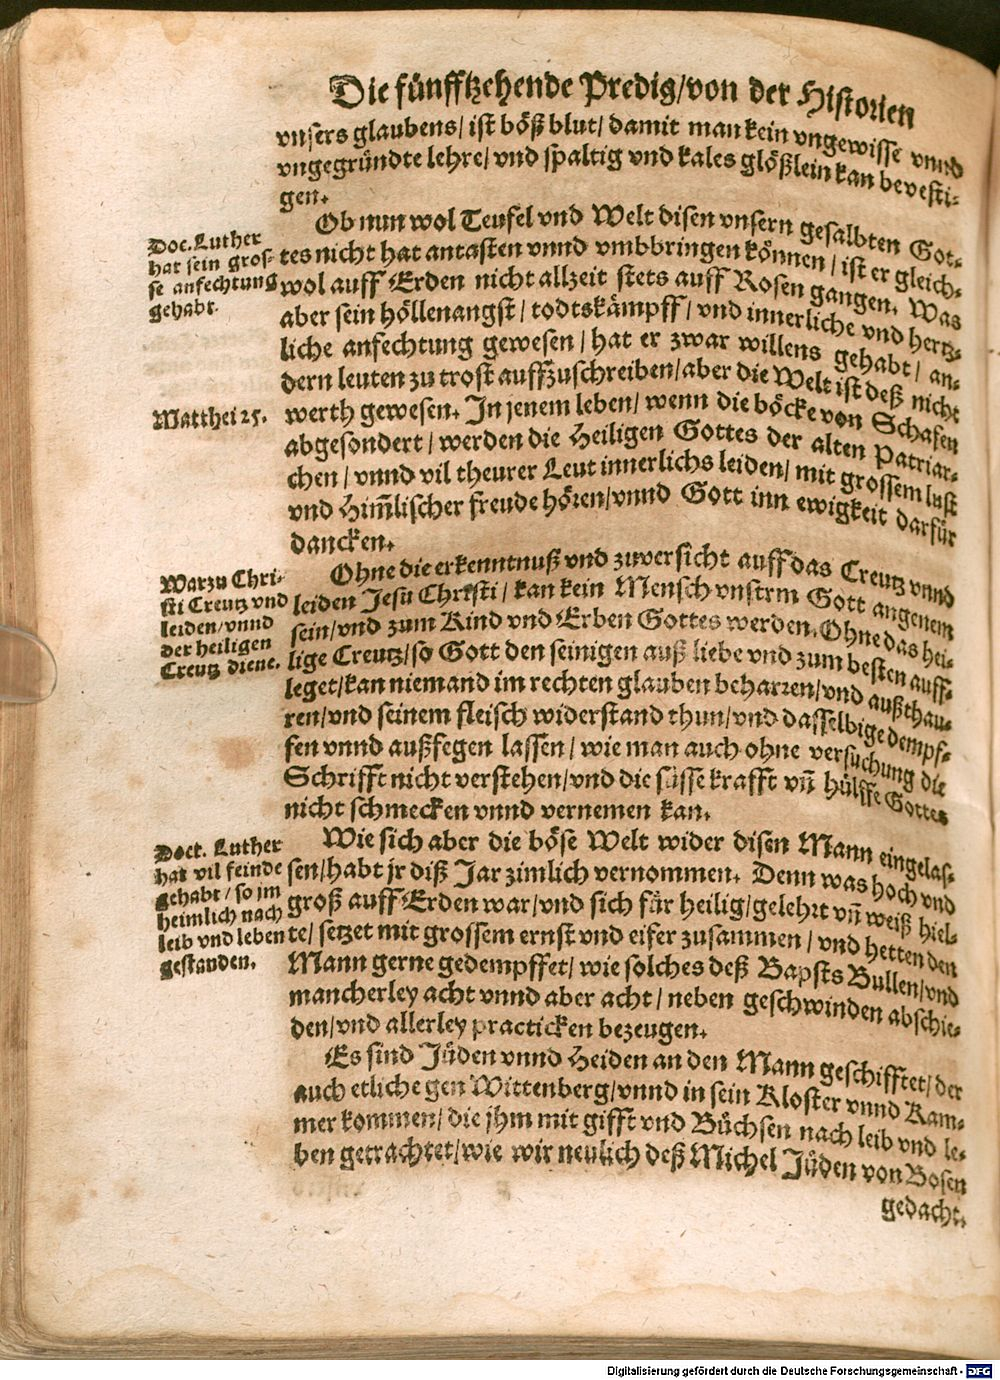 Die fünfftzehende Predig/von der Historien
vnsers glaubens/ ist böß blut/ damit man kein vngewisse vnnd
vngegründte lehre/ vnd spaltig vnd kales glößlein kan bevesti-
gen.
Ob nun wol Teufel vnd Welt disen vnsern gesalbten Got-
Doc. Luther
hat sein gros-
se anfechtung
gehabt.
tes nicht hat antasten vnnd vmbbringen können / ist er gleich-
wol auff Erden nicht allzeit stets auff Rosen gangen. Was
aber sein höllenangst / todtskämpff / vnd innerliche vnd hertz-
liche anfechtung gewesen / hat er zwar willens gehabt / an-
dern leuten zu trost auffzuschreiben/aber die Welt ist deß nicht
Matthei 25.
werth gewesen. In jenem leben/ wenn die böcke von Schafen
abgesondert / werden die Heiligen Gottes der alten Patriar-
chen / vnnd vil theurer Leut innerlichs leiden/ mit grossem lust
vnd Him̃lischer freude hören/vnnd Gott inn ewigkeit darfür
dancken.
Ohne die erkenntnuß vnd zuversicht auff das Creutz vnnd
Warzu Chri-
sti Creutz vnd
leiden/vnnd
der heiligen
Creutz diene.
leiden Jesu Christi / kan kein Mensch vnserm Gott angenem
sein/vnd zum Kind vnd Erben Gottes werden. Ohne das hei-
lige Creutz/so Gott den seinigen auß liebe vnd zum besten auff-
leget/kan niemand im rechten glauben beharren/vnd außthau-
ren/vnd seinem fleisch widerstand thun/vnd dasselbige dempf-
fen vnnd außfegen lassen / wie man auch ohne versuchung die
Schrifft nicht verstehen/vnd die süsse krafft vñ hülffe Gottes
nicht schmecken vnnd vernemen kan.
Wie sich aber die böse Welt wider disen Mann eingelas-
Doct. Luther
hat vil feinde
gehabt / so jm
heimlich nach
leib vnd leben
gestanden.
sen/habt jr diß Jar zimlich vernommen. Denn was hoch vnd
groß auff Erden war/vnd sich für heilig/gelehrt vñ weiß hiel-
te/ setzet mit grossem ernst vnd eifer zusammen / vnd hetten den
Mann gerne gedempffet/ wie solches deß Bapsts Bullen/vnd
mancherley acht vnnd aber acht / neben geschwinden abschie-
den/vnd allerley practicken bezeugen.
Es sind Jüden vnnd Heiden an den Mann geschifftet/ der
auch etliche gen Wittenberg/vnnd in sein Kloster vnnd Kam-
mer kommen/ die jhm mit gifft vnd Büchsen nach leib vnd le-
ben getrachtet/wie wir neulich deß Michel Jüden von Bosen
gedacht.
Digitalisierung gefördert durch die Deutsche Forschungsgemeinschaft - DFG